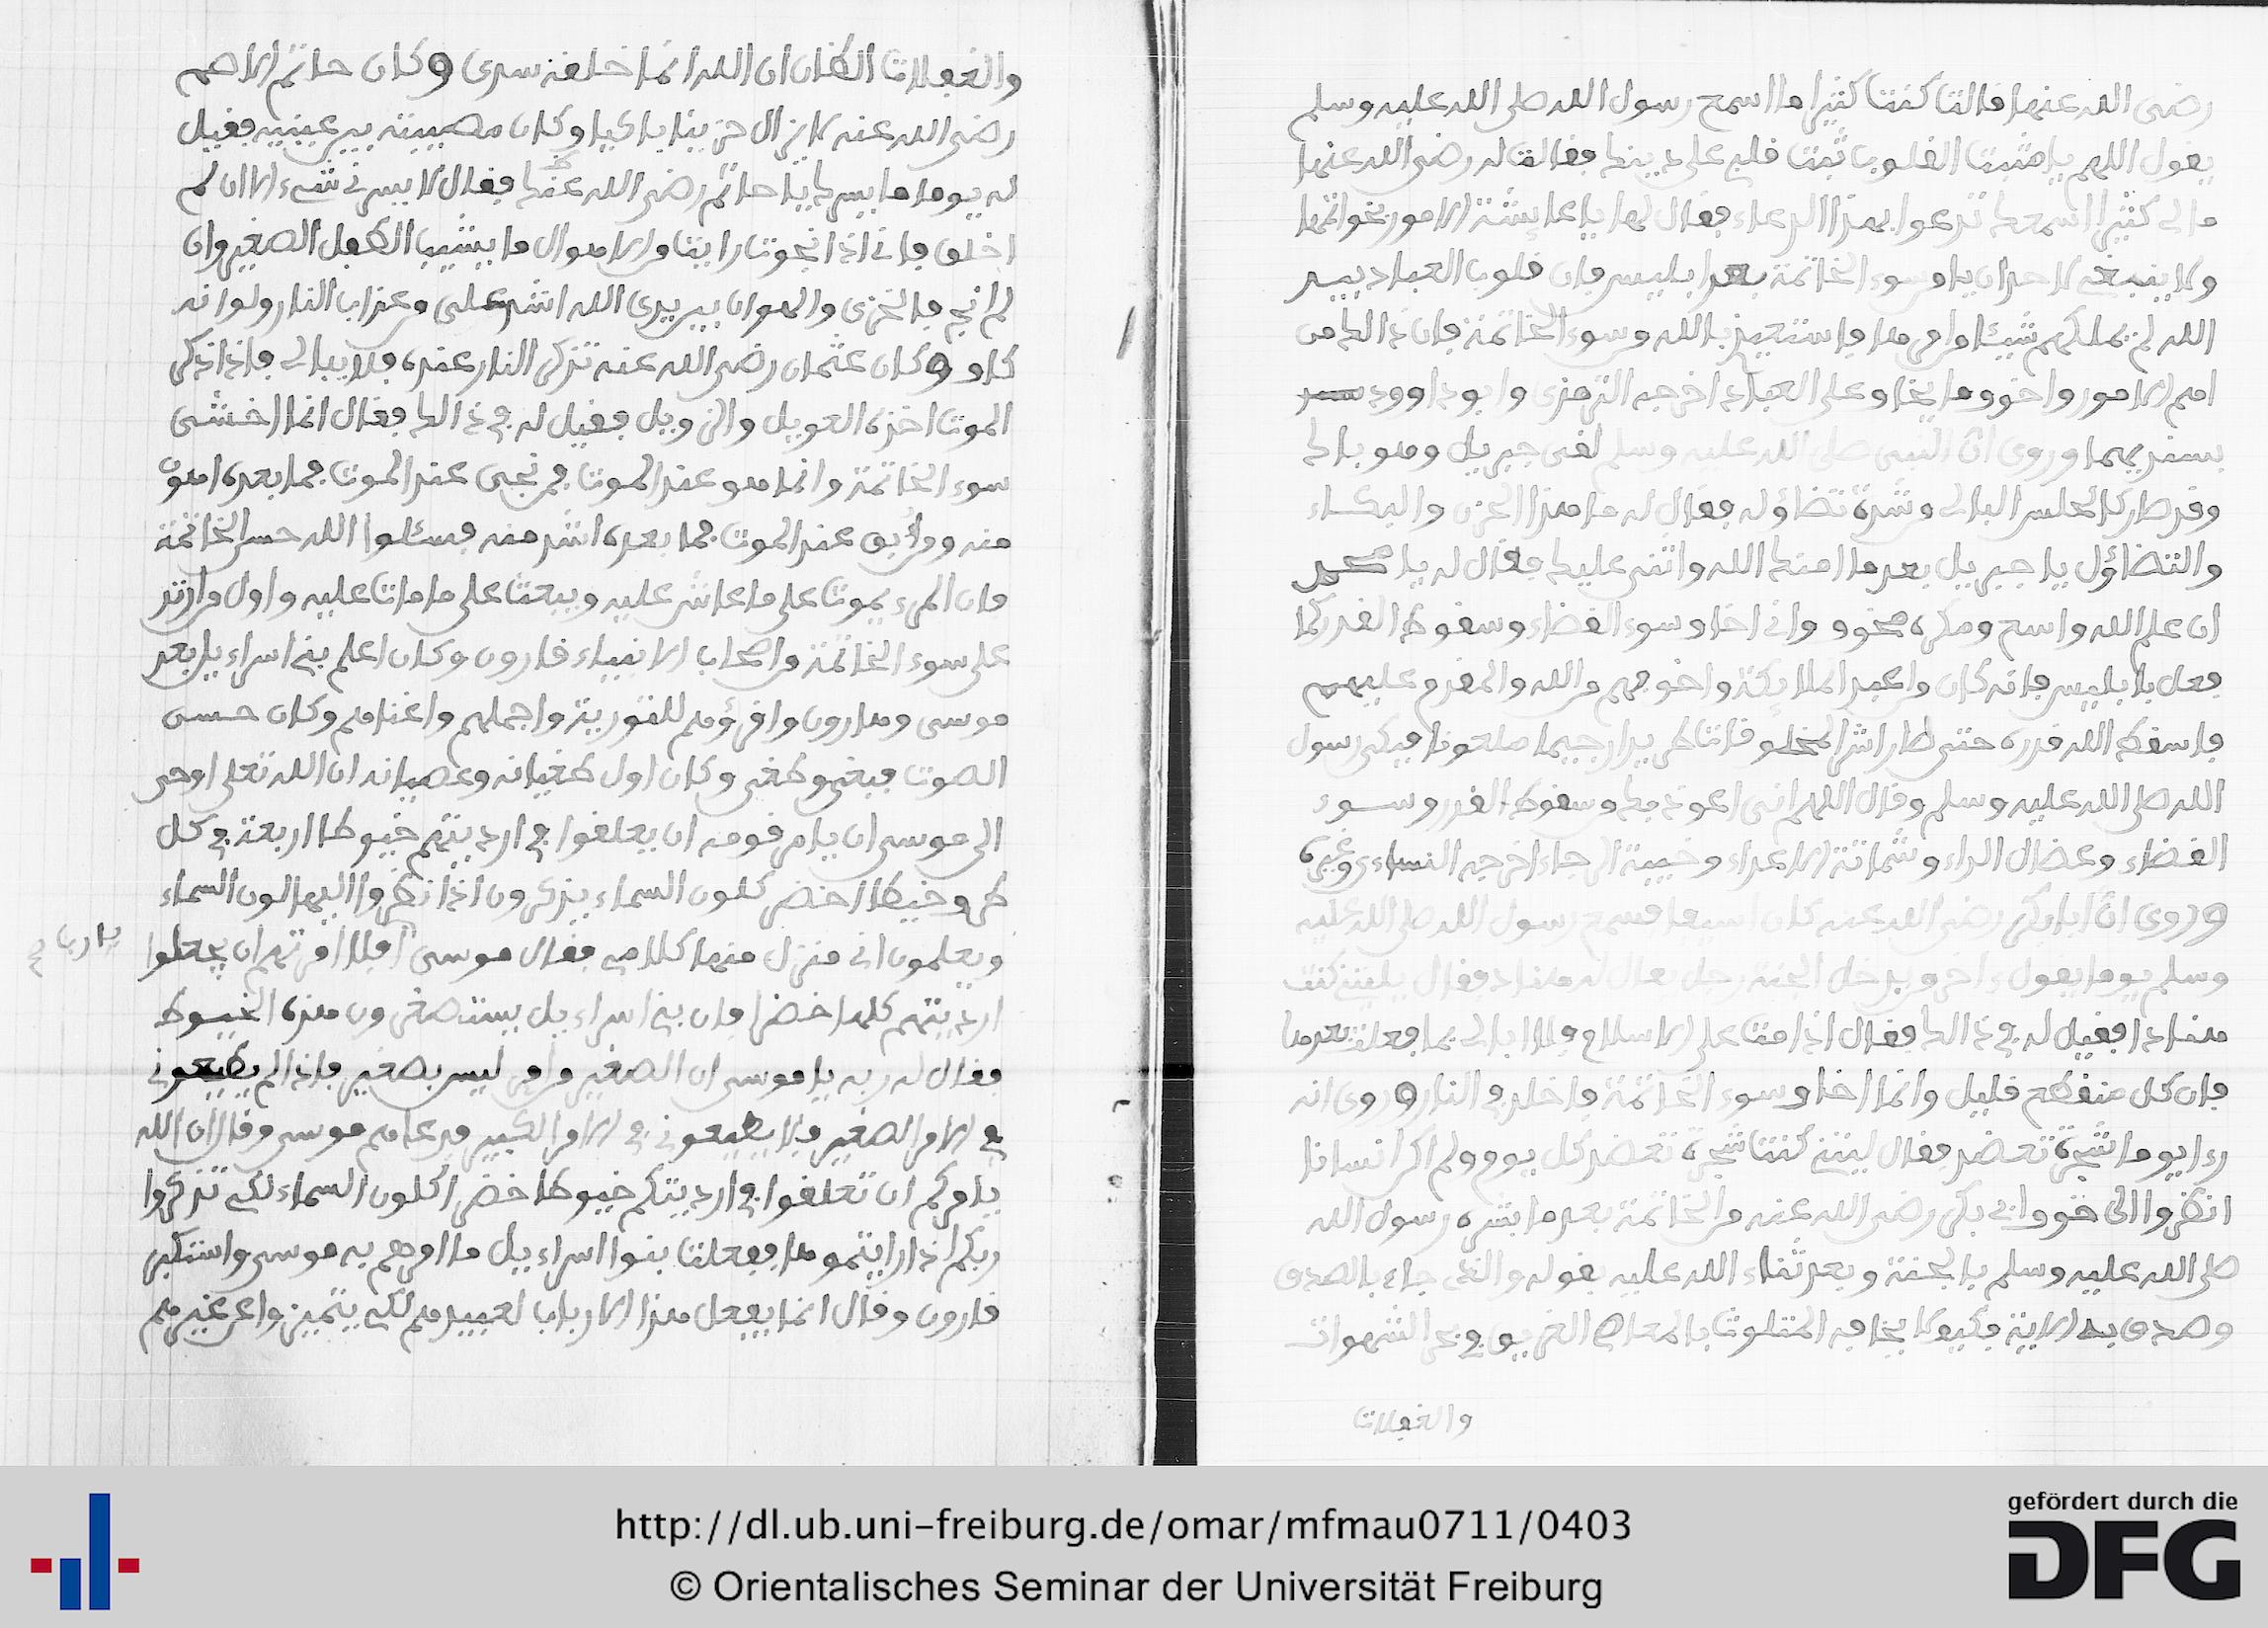 رضي الله عنها قالت كنت كثيرا ما اسمع رسول الله صلى الله عليه وسلم
يقول اللهم يا مثبت القلوب ثبت قلبي على دينك فقالت له رضي الله عنها
مالي كثيرا اسمعك تدعوا بهذا الدعاء فقال لها يا عايشة الامور بخواتمها
ولا ينبغي لاحد ان يامن سوء الخاتمة بعد ابليس فان قلوب العباد بيد
الله لم يملكهم شيئا من امرها فاستعيذ بالله من سوء الخاتمة فان ذالك من
اهم الامور واخوف ما يخاف على العباد اخرجه الترمذي وابو داوود
بسنديهما وروي ان النبي صلى الله عليه وسلم لقي جبريل وهو باك
وقد طار كالحلس البالي من شدة تضاؤله فقال له ما هذا الحزن والبكاء
والتضاؤل يا جبريل بعد ما امنك الله واثنى عليك فقال له يا محمد
ان علم الله واسع ومكره مخوف واني اخاف سوء القضاء وسقوط القدر كما
فعل بابليس فانه كان من اعبد الملائكة واخوفهم من الله والمقدم عليهم
فاسقط الله قدره حتى طار اشر المخلوقات طريدا رجيما ملعونا فبكى رسول
الله صلى الله عليه وسلم وقال اللهم اني اعوذ بك من سقوط القدر وسوء
القضاء وعضال الداء وشماتة الاعداء وخيبة الرجاء اخرجه النساءي وغيره
وروي ان ابا بكر رضي الله عنه كان اسيفا فسمع رسول الله صلى الله عليه
وسلم يوما يقول ءاخر من يدخل الجنة رجل يقال له هناد فقال يليتني كنت
هنادا فقيل له في ذالك فقال اذا مت على الاسلام فلا ابالي بما فعلت بعدها
فان كل منقطع قليل وانما اخاف سوء الخاتمة فاخلد في النار وروي انه
رءا يوما شجرة تعضد فقال ليتني كنت شجرة تعضد كل يوم ولم اكن انسانا
انظروا الى خوف ابي بكر رضي الله عنه من الخاتمة بعد ما بشره رسول الله
صلى الله عليه وسلم بالجنة وبعد ثناء الله عليه بقوله والذي جاء بالصدق
وصدق به الاية فكيف لا يخاف المتلوث بالمعاصي الغريق في بحر الشهوات
والغفلات
والغفلات الظان ان الله انما خلقه سدى وكان حاتم الاصم
رضي الله عنه لا يزال حزينا باكيا وكان مصيبته بين عينيه فقيل
له يوما ما يسرك يا حاتم رضي الله عنك فقال لا يسرني شيء الا ان لم
اخلق فاني اذا نجوت رايت من الاهوال ما يشيب الطفل الصغير وان
لم انج فالخزي والهوان بين يدي الله اشد علي من عذاب النار ولو انه
كاف وكان عثمان رضي الله عنه تذكر النار عنده فلا يبالي فاذا ذكر
الموت اخذه العويل والزويل فقيل له في ذالك فقال انما اخشى
سوء الخاتمة وانما هو عند الموت فمن نجى عند الموت فما بعده اهون
منه ومن اوبق عند الموت فما بعده اشد منه فسئلوا الله حسن الخاتمة
فان المرء يموت على ما عاش عليه ويبعث على ما مات عليه واول من ارتد
على سوء الخاتمة من اصحاب الانبياء قارون وكان اعلم بني اسراءيل بعد
موسى وهارون واقرؤهم للتورية واجملهم واغناهم وكان حسن
الصوت فبغى وطغى وكان اول طغيانه وعصيانه ان الله تعلى اوحى
الى موسى ان يامر قومه ان يعلقوا في ارديتهم خيوطا اربعة في كل
طرف خيطا اخضر كلون السماء يذكرون اذا نظروا اليها لون السماء
ويعلمون اني منزل منها كلامي فقال موسى افلا امرتهم ان يجعلوا
يا رب
ارديتهم كلها خضرا فان بني اسراءيل يستصغرون هذه الخيوط
فقال له ربه يا موسى ان الصغير من امري ليس بصغير فاذا لم يطيعوني
في الامر الصغير فلا يطيعوني في الامر الكبير فدعاهم موسى وقال ان الله
يامركم ان تعلقوا في ارديتكم خيوطا خضرا كلون السماء لكي تذكروا
ربكم اذا رايتموها ففعلت بنوا اسراءيل ما امرهم به موسى واستكبر
قارون وقال انما يفعل هذا الارباب لعبيدهم لكي يتميزوا عن غيرهم
http://dl.ub.uni-freiburg.de/omar/mfmau0711/0403
© Orientalisches Seminar der Universität Freiburg
gefördert durch die
DFG